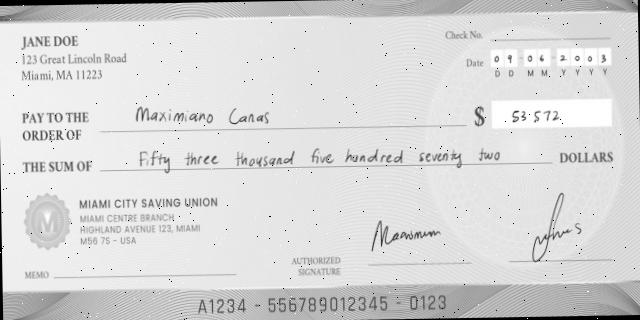 JANE DOE
123 Great Lincoln Road
Miami, MA 11223
Check No.
Date 09 - 06 - 2003
D D M M Y Y Y Y
PAY TO THE
ORDER OF Maximiano Canas
$ 53.572
THE SUM OF Fifty three thousand five hundred seventy two DOLLARS
M
MIAMI CITY SAVING UNION
MIAMI CENTRE BRANCH
HIGHLAND AVENUE 123, MIAMI
M56 7S - USA
MEMO
AUTHORIZED
SIGNATURE
A1234 - 556789012345 - 0123